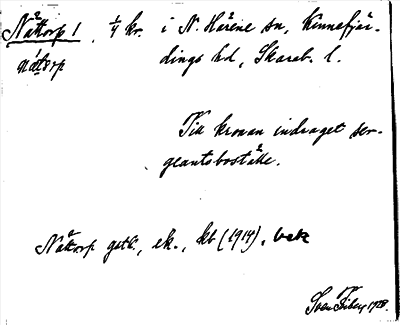 Nåttorp 1, 1/4 kr. i N. Härene sn, Kinnefjär-
dings hd, Skarab. l.
Till kronan indraget ser-
geantsboställe.
Nåttorp gatk., ek., kb (1914), bek
Sven Fiberg 1928.